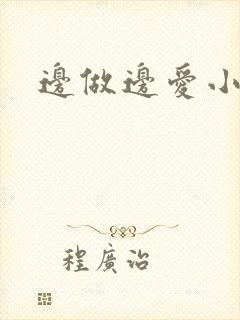 邊做邊愛小
程廣治